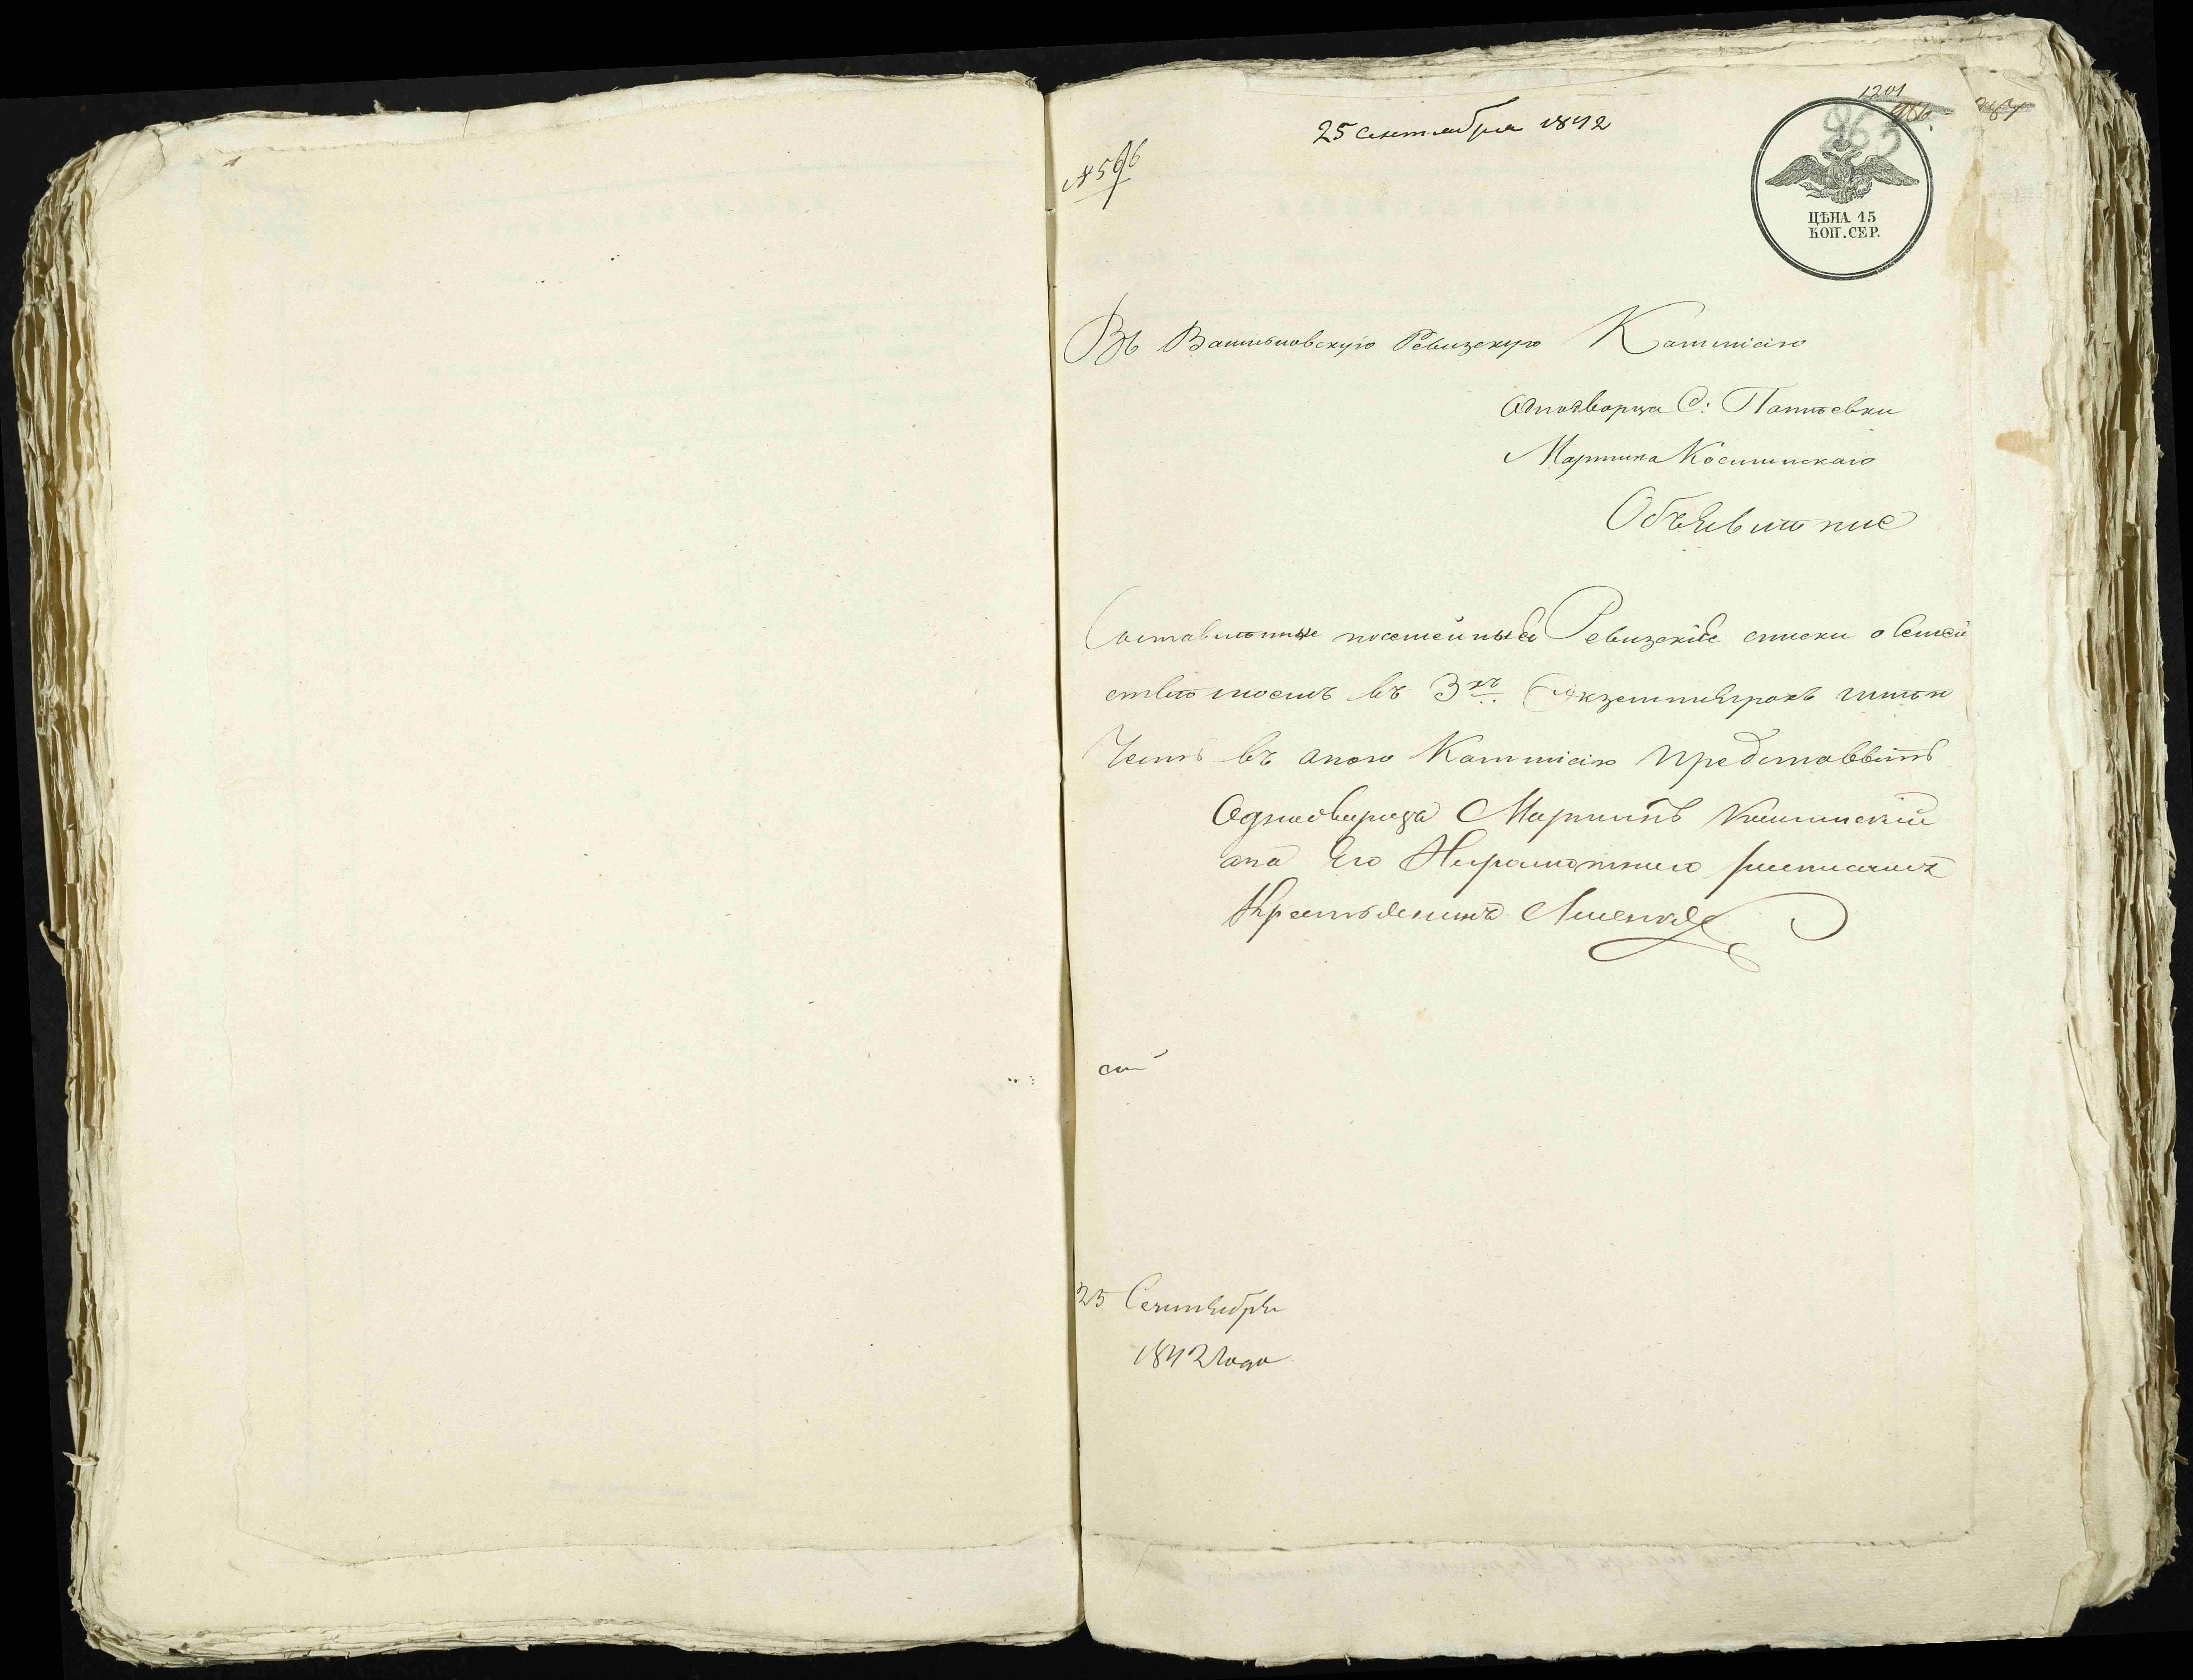 25 Сентября 1842
№ 566
1201
963
ЦѢНА 15
КОП. СЕР.
Въ Ревизскую Коммисію
Однодворца С:
Мартина Косинскаго
Объявленіе
Составленные посемейные Ревизскіе списки о Семей
ствѣ моемъ въ 3хъ Екземплярахъ имѣю
Честь въ оную Коммисію представить
Однодворецъ Мартинъ Косинскій
а за Его Неграмотнаго росписался
Крестьянинъ
25 Сентября
1842 года